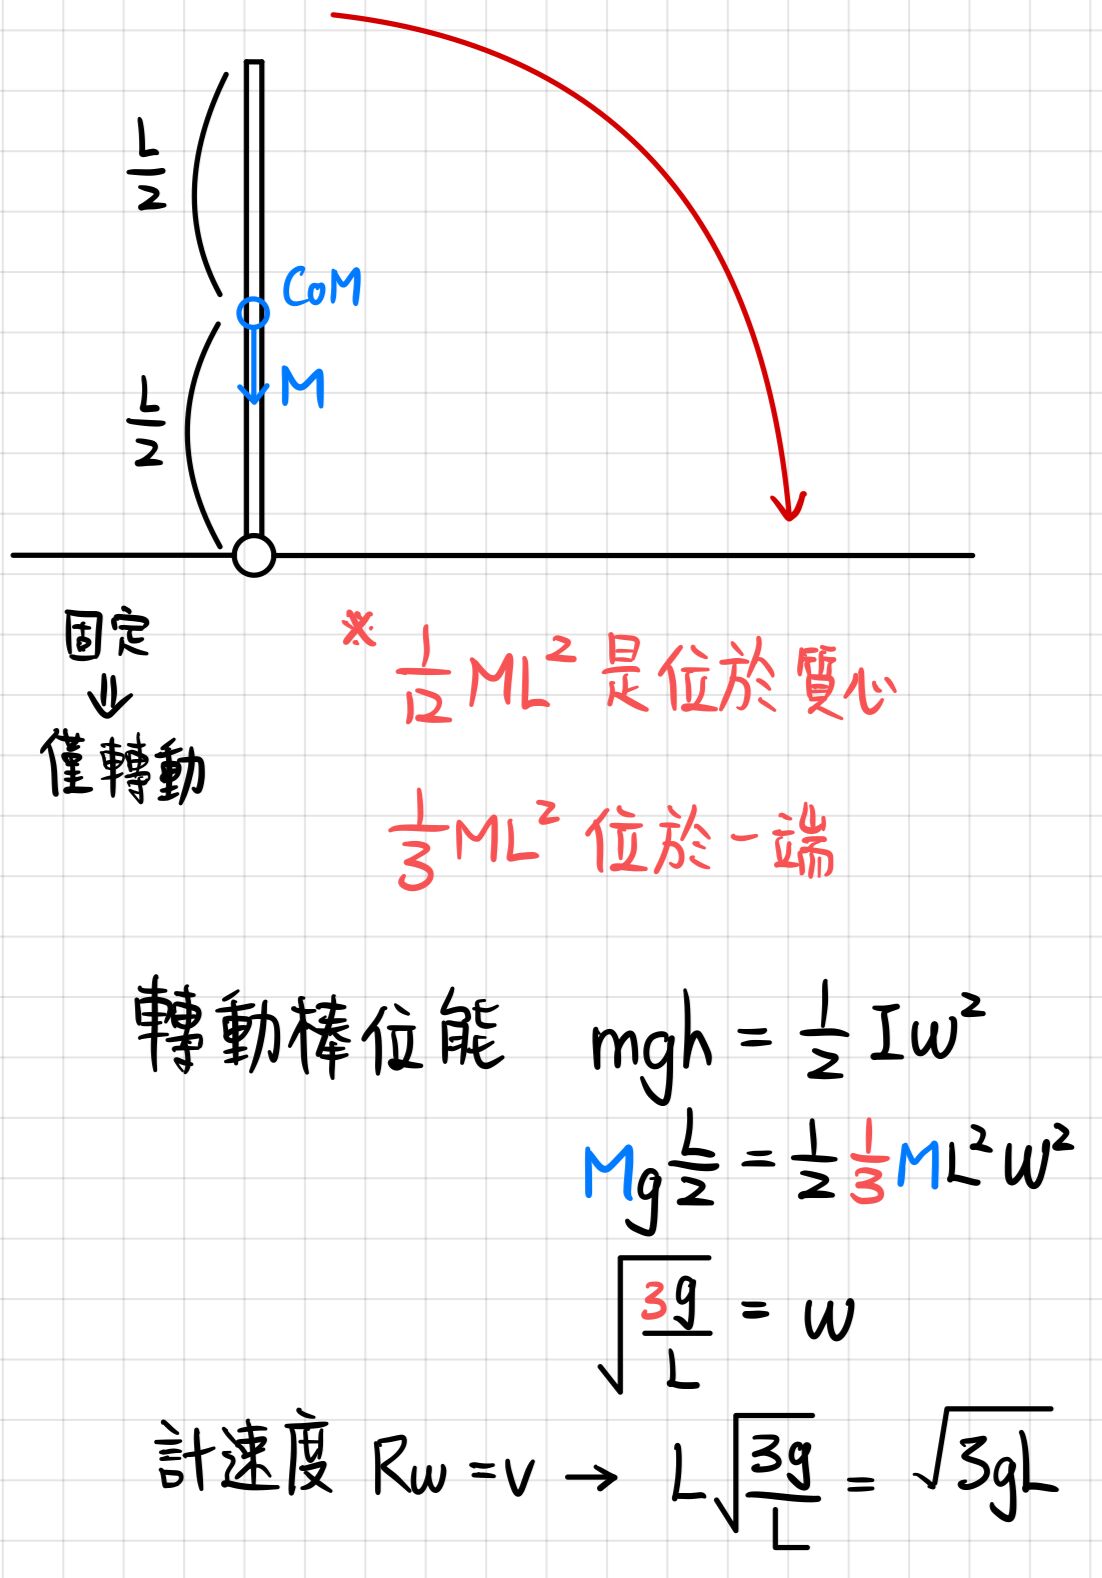 L/2
CoM
M
L/2
固定
⇓
僅轉動
※ 1/12 ML² 是位於質心
1/3 ML² 位於一端
轉動棒位能 mgh = 1/2 Iw²
Mg L/2 = 1/2 1/3 ML²w²
√(3g/L) = w
計速度 Rw = v → L√(3g/L) = √3gL